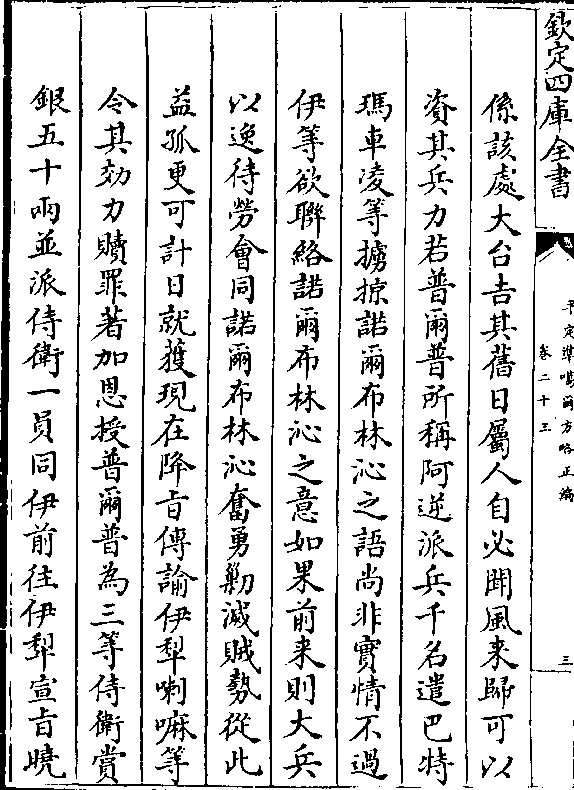 欽定四庫全書
平定準噶爾方略正編
卷二十三
三
係該處大台吉其舊日屬人自必聞風来歸可以
資其兵力若普爾普所稱阿逆派兵千名遣巴特
瑪車凌等擄掠諾爾布林沁之語尚非實情不過
伊等欲聯絡諾爾布林沁之意如果前来則大兵
以逸待勞會同諾爾布林沁奮勇勦滅賊勢從此
益孤更可計日就獲現在降㫖傳諭伊犁喇嘛等
令其効力贖罪著加恩授普爾普為三等侍衛賞
銀五十兩並派侍衛一員同伊前往伊犁宣㫖曉